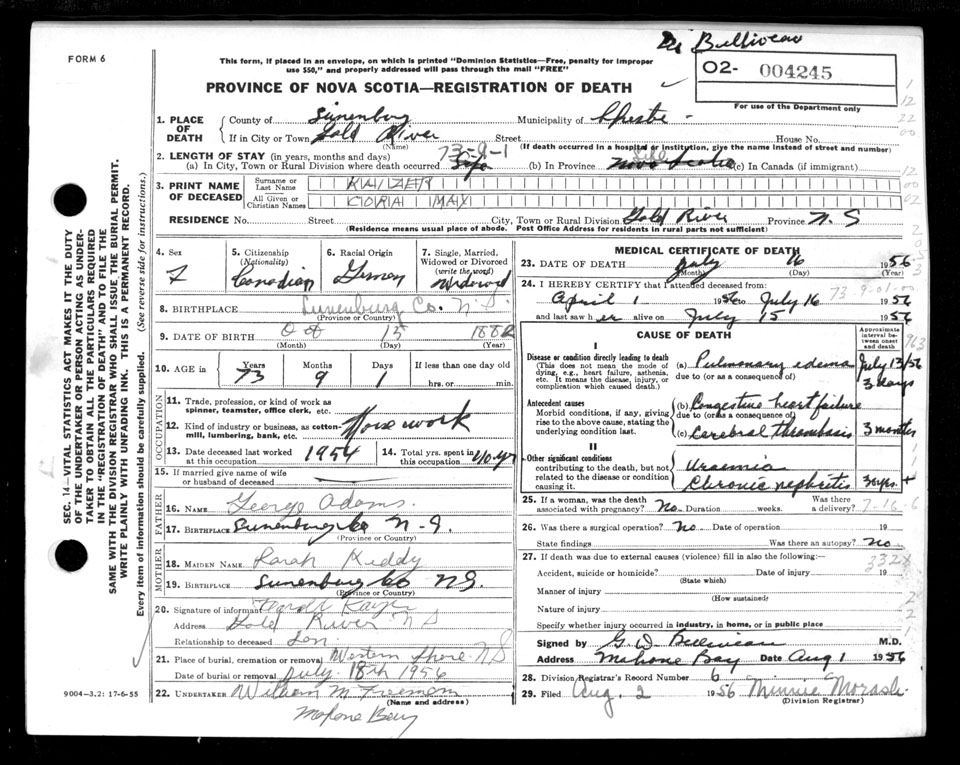 Dr Belliveau
FORM 6
This form, if placed in an envelope, on which is printed "Dominion Statistics—Free, penalty for improper
use $50," and properly addressed will pass through the mail "FREE"
02- 004245
For use of the Department only
PROVINCE OF NOVA SCOTIA—REGISTRATION OF DEATH
1. PLACE OF DEATH
County of Lunenburg Municipality of Chester
If in City or Town Gold River Street House No.
(Name) (If death occurred in a hospital or institution, give the name instead of street and number)
73-9-1
2. LENGTH OF STAY (in years, months and days)
(a) In City, Town or Rural Division where death occurred Life (b) In Province Life Nova Scotia (c) In Canada (if immigrant)
3. PRINT NAME OF DECEASED
Surname or Last Name KAIZER
All Given or Christian Names CORA MAY
RESIDENCE No. Street City, Town or Rural Division Gold River Province N.S
(Residence means usual place of abode. Post Office Address for residents in rural parts not sufficient)
4. Sex F
5. Citizenship (Nationality) Canadian
6. Racial Origin German
7. Single, Married, Widowed or Divorced (write the word) Widowed
8. BIRTHPLACE Lunenburg Co. N.S.
(Province or Country)
9. DATE OF BIRTH Oct 15 1882
(Month) (Day) (Year)
10. AGE in Years Months Days If less than one day old
73 9 1 hrs. or min.
OCCUPATION
11. Trade, profession, or kind of work as
spinner, teamster, office clerk, etc.
12. Kind of industry or business, as cotton-
mill, lumbering, bank, etc. Housework
13. Date deceased last worked at this occupation 1954
14. Total yrs. spent in this occupation 40 yr
15. If married give name of wife
or husband of deceased
FATHER
16. NAME George Adams
17. BIRTHPLACE Lunenburg Co N.S.
(Province or Country)
MOTHER
18. MAIDEN NAME Sarah Keddy
19. BIRTHPLACE Lunenburg Co N.S.
(Province or Country)
20. Signature of informant
Address Gold River N S
Relationship to deceased Son
21. Place of burial, cremation or removal Western Shore N S
Date of burial or removal July 18th 1956
22. UNDERTAKER William M Freeman
(Name and address)
Mahone Bay
9004-3.2: 17-6-55
SEC. 14—VITAL STATISTICS ACT MAKES IT THE DUTY
OF THE UNDERTAKER OR PERSON ACTING AS UNDER-
TAKER TO OBTAIN ALL THE PARTICULARS REQUIRED
IN THE "REGISTRATION OF DEATH" AND TO FILE THE
SAME WITH THE DIVISION REGISTRAR WHO SHALL ISSUE THE BURIAL PERMIT.
WRITE PLAINLY WITH UNFADING INK. THIS IS A PERMANENT RECORD.
Every item of information should be carefully supplied. (See reverse side for instructions.)
MEDICAL CERTIFICATE OF DEATH
23. DATE OF DEATH July 16 1956
(Month) (Day) (Year)
24. I HEREBY CERTIFY that I attended deceased from:
73-9-01-00
April 1 1956 to July 16 1956
and last saw her alive on July 15 1956
CAUSE OF DEATH
Approximate interval between onset and death
I
Disease or condition directly leading to death
(This does not mean the mode of
dying, e.g., heart failure, asthenia,
etc. It means the disease, injury, or
complication which caused death.)
(a) Pulmonary edema July 13/56
due to (or as a consequence of) 3 days
Antecedent causes
Morbid conditions, if any, giving
rise to the above cause, stating the
underlying condition last.
(b) Congestive heart failure
due to (or as a consequence of)
(c) Cerebral thrombosis 3 months
II
Other significant conditions
contributing to the death, but not
related to the disease or condition
causing it.
Uraemia
Chronic nephritis 3 yrs. +
25. If a woman, was the death associated with pregnancy? No. Duration weeks. Was there a delivery? 7-16-6
26. Was there a surgical operation? No Date of operation 19
State findings Was there an autopsy? No
27. If death was due to external causes (violence) fill in also the following:—
332X
Accident, suicide or homicide? Date of injury 19
(State which)
Manner of injury
(How sustained)
Nature of injury
Specify whether injury occurred in industry, in home, or in public place
Signed by G. D. Belliveau M.D.
Address Mahone Bay Date Aug 1 1956
28. Division Registrar's Record Number 6
29. Filed Aug. 2 1956 Minnie Morash
(Division Registrar)